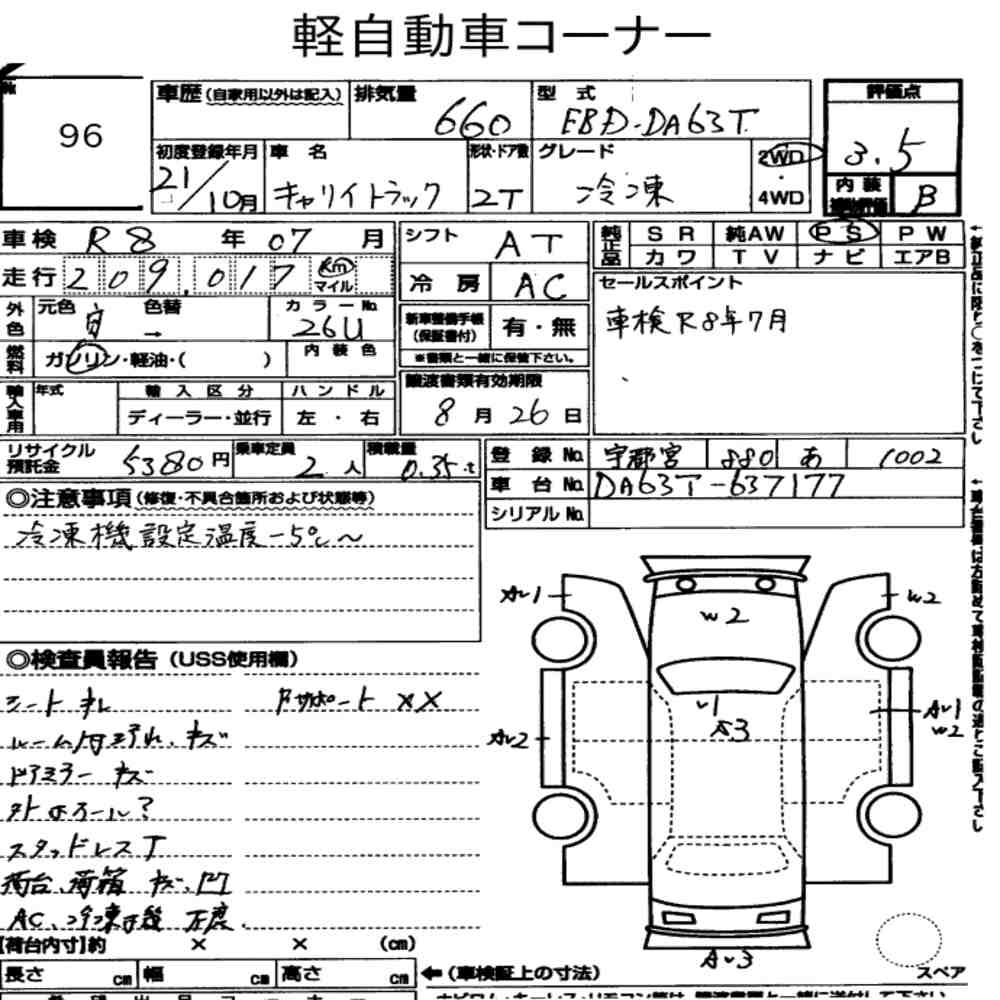 軽自動車コーナー
96
車歴 (自家用以外は記入) 排気量 660 型式 EBD-DA63T
評価点 3.5
初度登録年月 21/10月 車名 キャリイトラック 形状・ドア数 2T グレード 冷凍 2WD・4WD
内装補助評価 B
車検 R8年07月 シフト AT
純正品 SR 純AW PS PW
カワ TV ナビ エアB
走行 209,017 Km マイル 冷房 AC
セールスポイント
車検R8年7月
外色 元色 白 → 色替 カラーNo. 26U
新車整備手帳(保証書付) 有・無
※書類と一緒に保管下さい。
燃料 ガソリン・軽油・( ) 内装色
輸入車用 年式 輸入区分 ハンドル
ディーラー・並行 左・右
譲渡書類有効期限
8月26日
リサイクル預託金 5380円 乗車定員 2人 積載量 0.35t
登録No. 宇都宮 880 あ 1002
車台No. DA63T-637177
シリアルNo.
◎注意事項 (修復・不具合箇所および状態等)
冷凍機設定温度-5℃〜
◎検査員報告 (USS使用欄)
シートキレ
ルーム内汚れ、キズ
ドアミラーキズ
スタッドレスT
荷台、荷箱 キズ、凹
Rサポート XX
W2
W2
A3
W2
スペア
【荷台内寸】約 × × (cm)
長さ cm 幅 cm 高さ cm
←(車検証上の寸法)